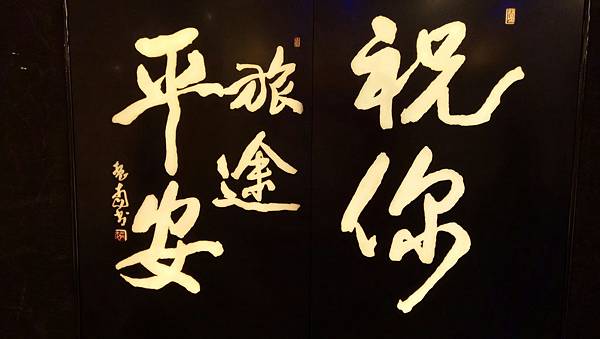 祝你
旅途
平安